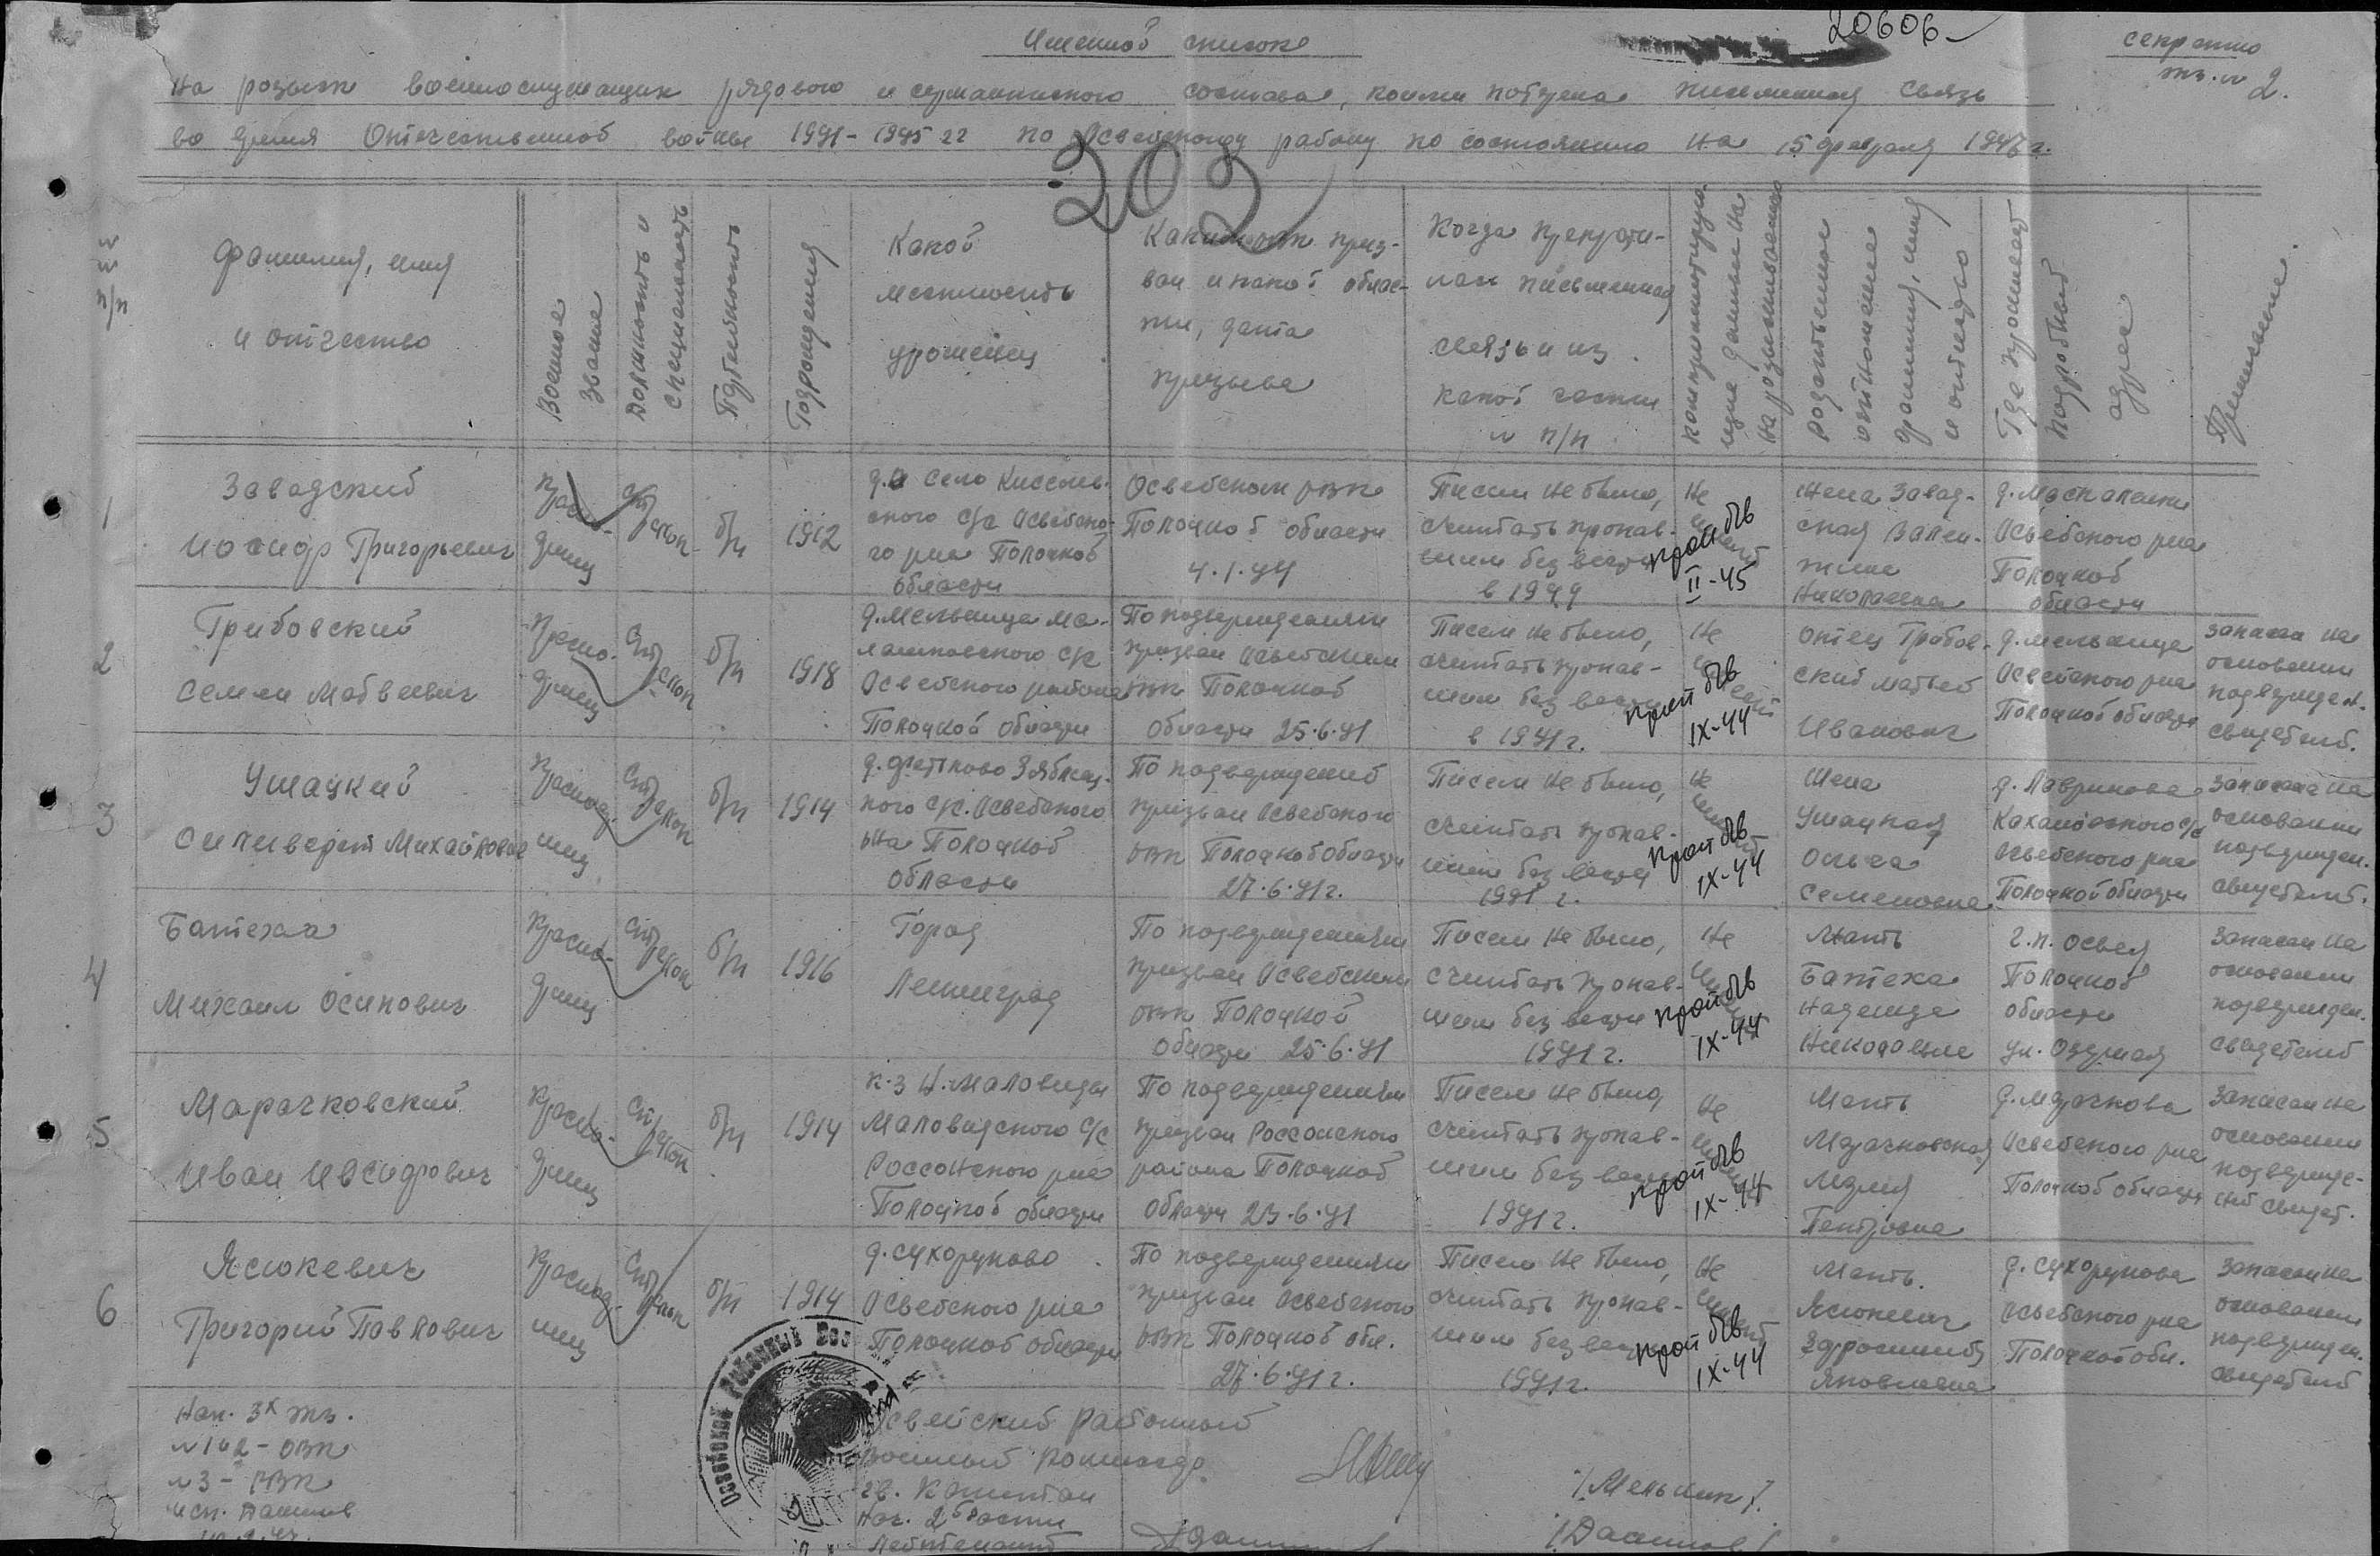 20606
секретно
экз. № 2.
Именной список
на розыск военнослужащих рядового и сержантского состава, коими потеряна письменная связь
во время Отечественной войны 1941-1945 гг по Освейскому району по состоянию на 15 февраля 1946 г.
202
№№ п/п
Фамилия, имя и отчество
Военное звание
Должность и специальность
Партийность
Год рождения
Какой местности уроженец
Каким РВК приз-
ван и какой облас-
ти, дата
призыва
Когда прекрати-
лась письменная
связь и из
какой части
№ п/п
Компрометирую-
щие данные на
на разыскиваемого
Родственное
отношение
фамилия, имя
и отчество
Где проживает
подробный
адрес
Примечание
1
Завадский
Иосиф Григорьевич
Красно-
армеец
Стрелок
б/п
1912
село Кисел
ского с/с Освейско-
го р-на Полоцкой
области
Освейским РВК
Полоцкой области
4.1.44
Писем не было,
считать пропав-
шим без вести
в 1944
Не имеет
проп б/в
II-45
Жена Завад-
ская Вален-
тина
Николаевна
д. Москаленки
Освейского р-на
Полоцкой
области
2
Грибовский
Семен Матвеевич
Красно-
армеец
Стрелок
б/п
1918
д. Мельница
с/с
Освейского района
Полоцкой области
По подтверждениям
призван Освейским
РВК Полоцкой
области 25.6.41
Писем не было,
считать пропав-
шим без вести
в 1941 г.
Не имеет
проп б/в
IX-44
Отец Грибов-
ский Матвей
Иванович
д. Мельница
Освейского р-на
Полоцкой области
Записан на
основании
подтвержден.
свидетелей.
3
Ушацкий
Силиверст Михайлович
Красноар-
меец
Стрелок
б/п
1914
д. Фатьково Зябкиц-
кого с/с. Освейского
р-на Полоцкой
области
По подтверждений
призван Освейского
РВК Полоцкой области
27.6.41 г.
Писем не было,
считать пропав-
шим без вести
1941 г.
Не имеет
проп б/в
IX-44
Жена
Ушацкая
Ольга
Семеновна
д. Лавриново
Кохановского с/с
Освейского р-на
Полоцкой области
Записан на
основании
подтвержден.
свидетелей.
4
Батеха
Михаил Осипович
Красно-
армеец
Стрелок
б/п
1916
Город
Ленинград
По подтверждениям
призван Освейским
РВК Полоцкой
области 25.6.41
Писем не было,
считать пропав-
шим без вести
1941 г.
Не имеет
проп б/в
IX-44
Мать
Батеха
Надежда
г.п. Освея
Полоцкой
области
ул. Озерная
Записан на
основании
подтвержден.
свидетелей
5
Марачковский
Иван Иосифович
Красно-
армеец
Стрелок
б/п
1914
к-з Н. Маловиды
Маловидского с/с
Россонского р-на
Полоцкой области
По подтверждениям
призван Россонского
района Полоцкой
области 23.6.41
Писем не было,
считать пропав-
шим без вести
1941 г.
Не имеет
проп б/в
IX-44
Мать
Марачковская
Мария
Петровна
д. Морочково
Освейского р-на
Полоцкой области
Записан на
основании
подтвержде-
ний свидет.
6
Ясюкевич
Григорий Павлович
Красноар-
меец
Стрелок
б/п
1914
д. Сухоруково
Освейского р-на
Полоцкой области
По подтверждениям
призван Освейского
РВК Полоцкой обл.
27.6.41 г.
Писем не было,
считать пропав-
шим без вести
1941 г.
Не имеет
проп б/в
IX-44
Мать.
Ясюкевич
Яковлевна
д. Сухоруково
Освейского р-на
Полоцкой обл.
Записан на
основании
подтвержден.
свидетелей
Нап. 3х экз.
№ 1 и 2 - ОВК
№ 3 - РВК
исп. Дашков
Освейский районный
военный комиссар
гв. Капитан
/Мельник/.
Нач. 2й части
Лейтенант
/Дашков/